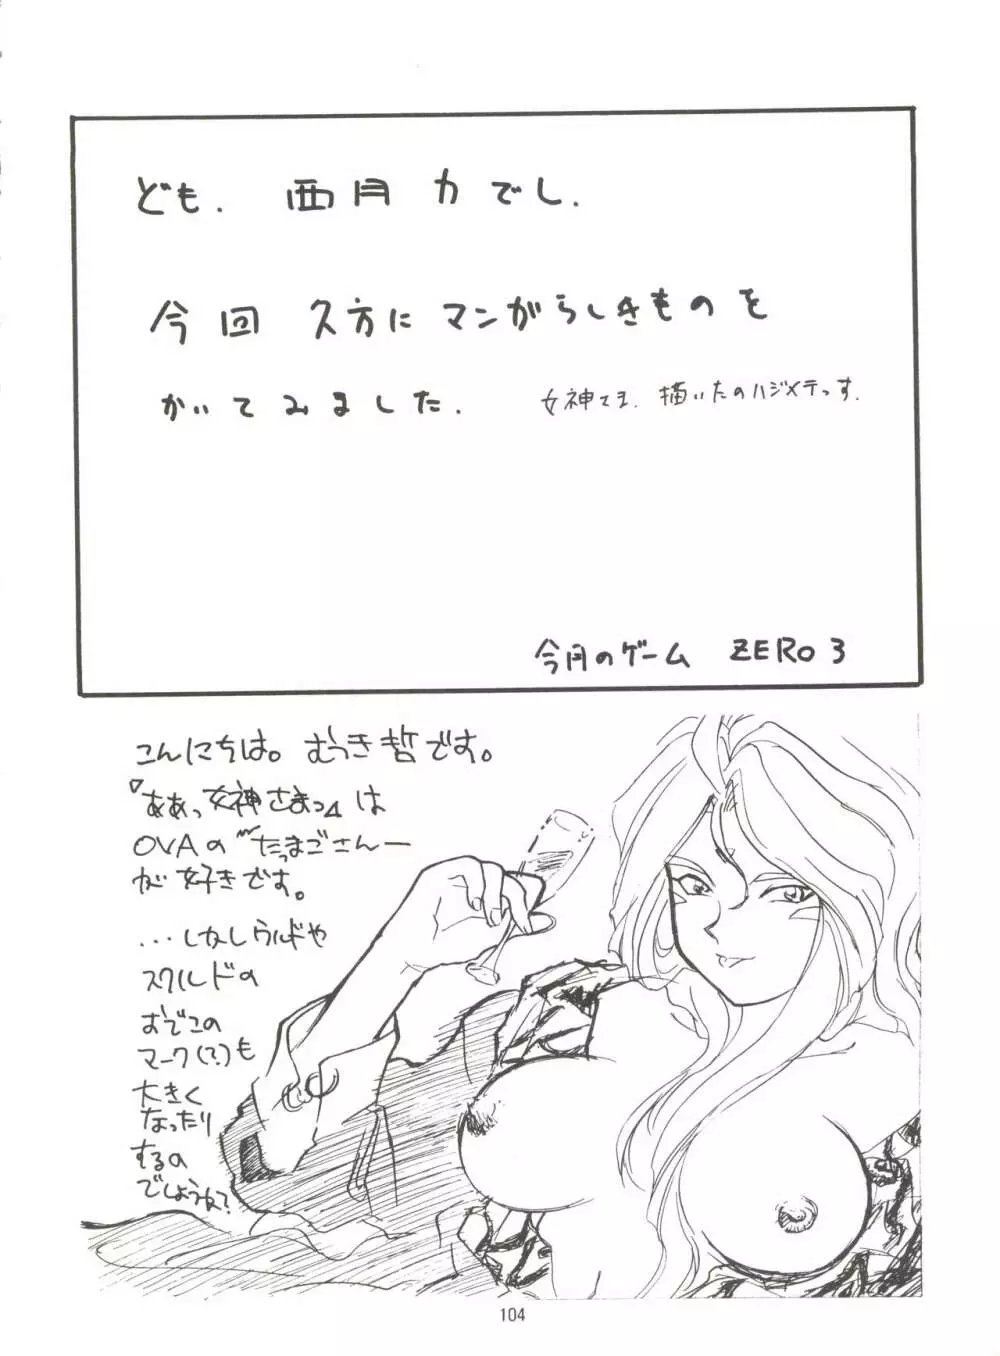 ども. 酉月力でし.
今回 久方にマンがらしきものを
かいてみました. 女神さま. 描いたのハジメテっす.
今月のゲーム ZERO 3
こんにちは。むつき哲です。
『ああっ女神さまっ』は
OVAの“たまごさんー
が好きです。
...しかしウルドや
スクルドの
おでこの
マーク(?)も
大きく
なったり
するの
でしょうね?
104